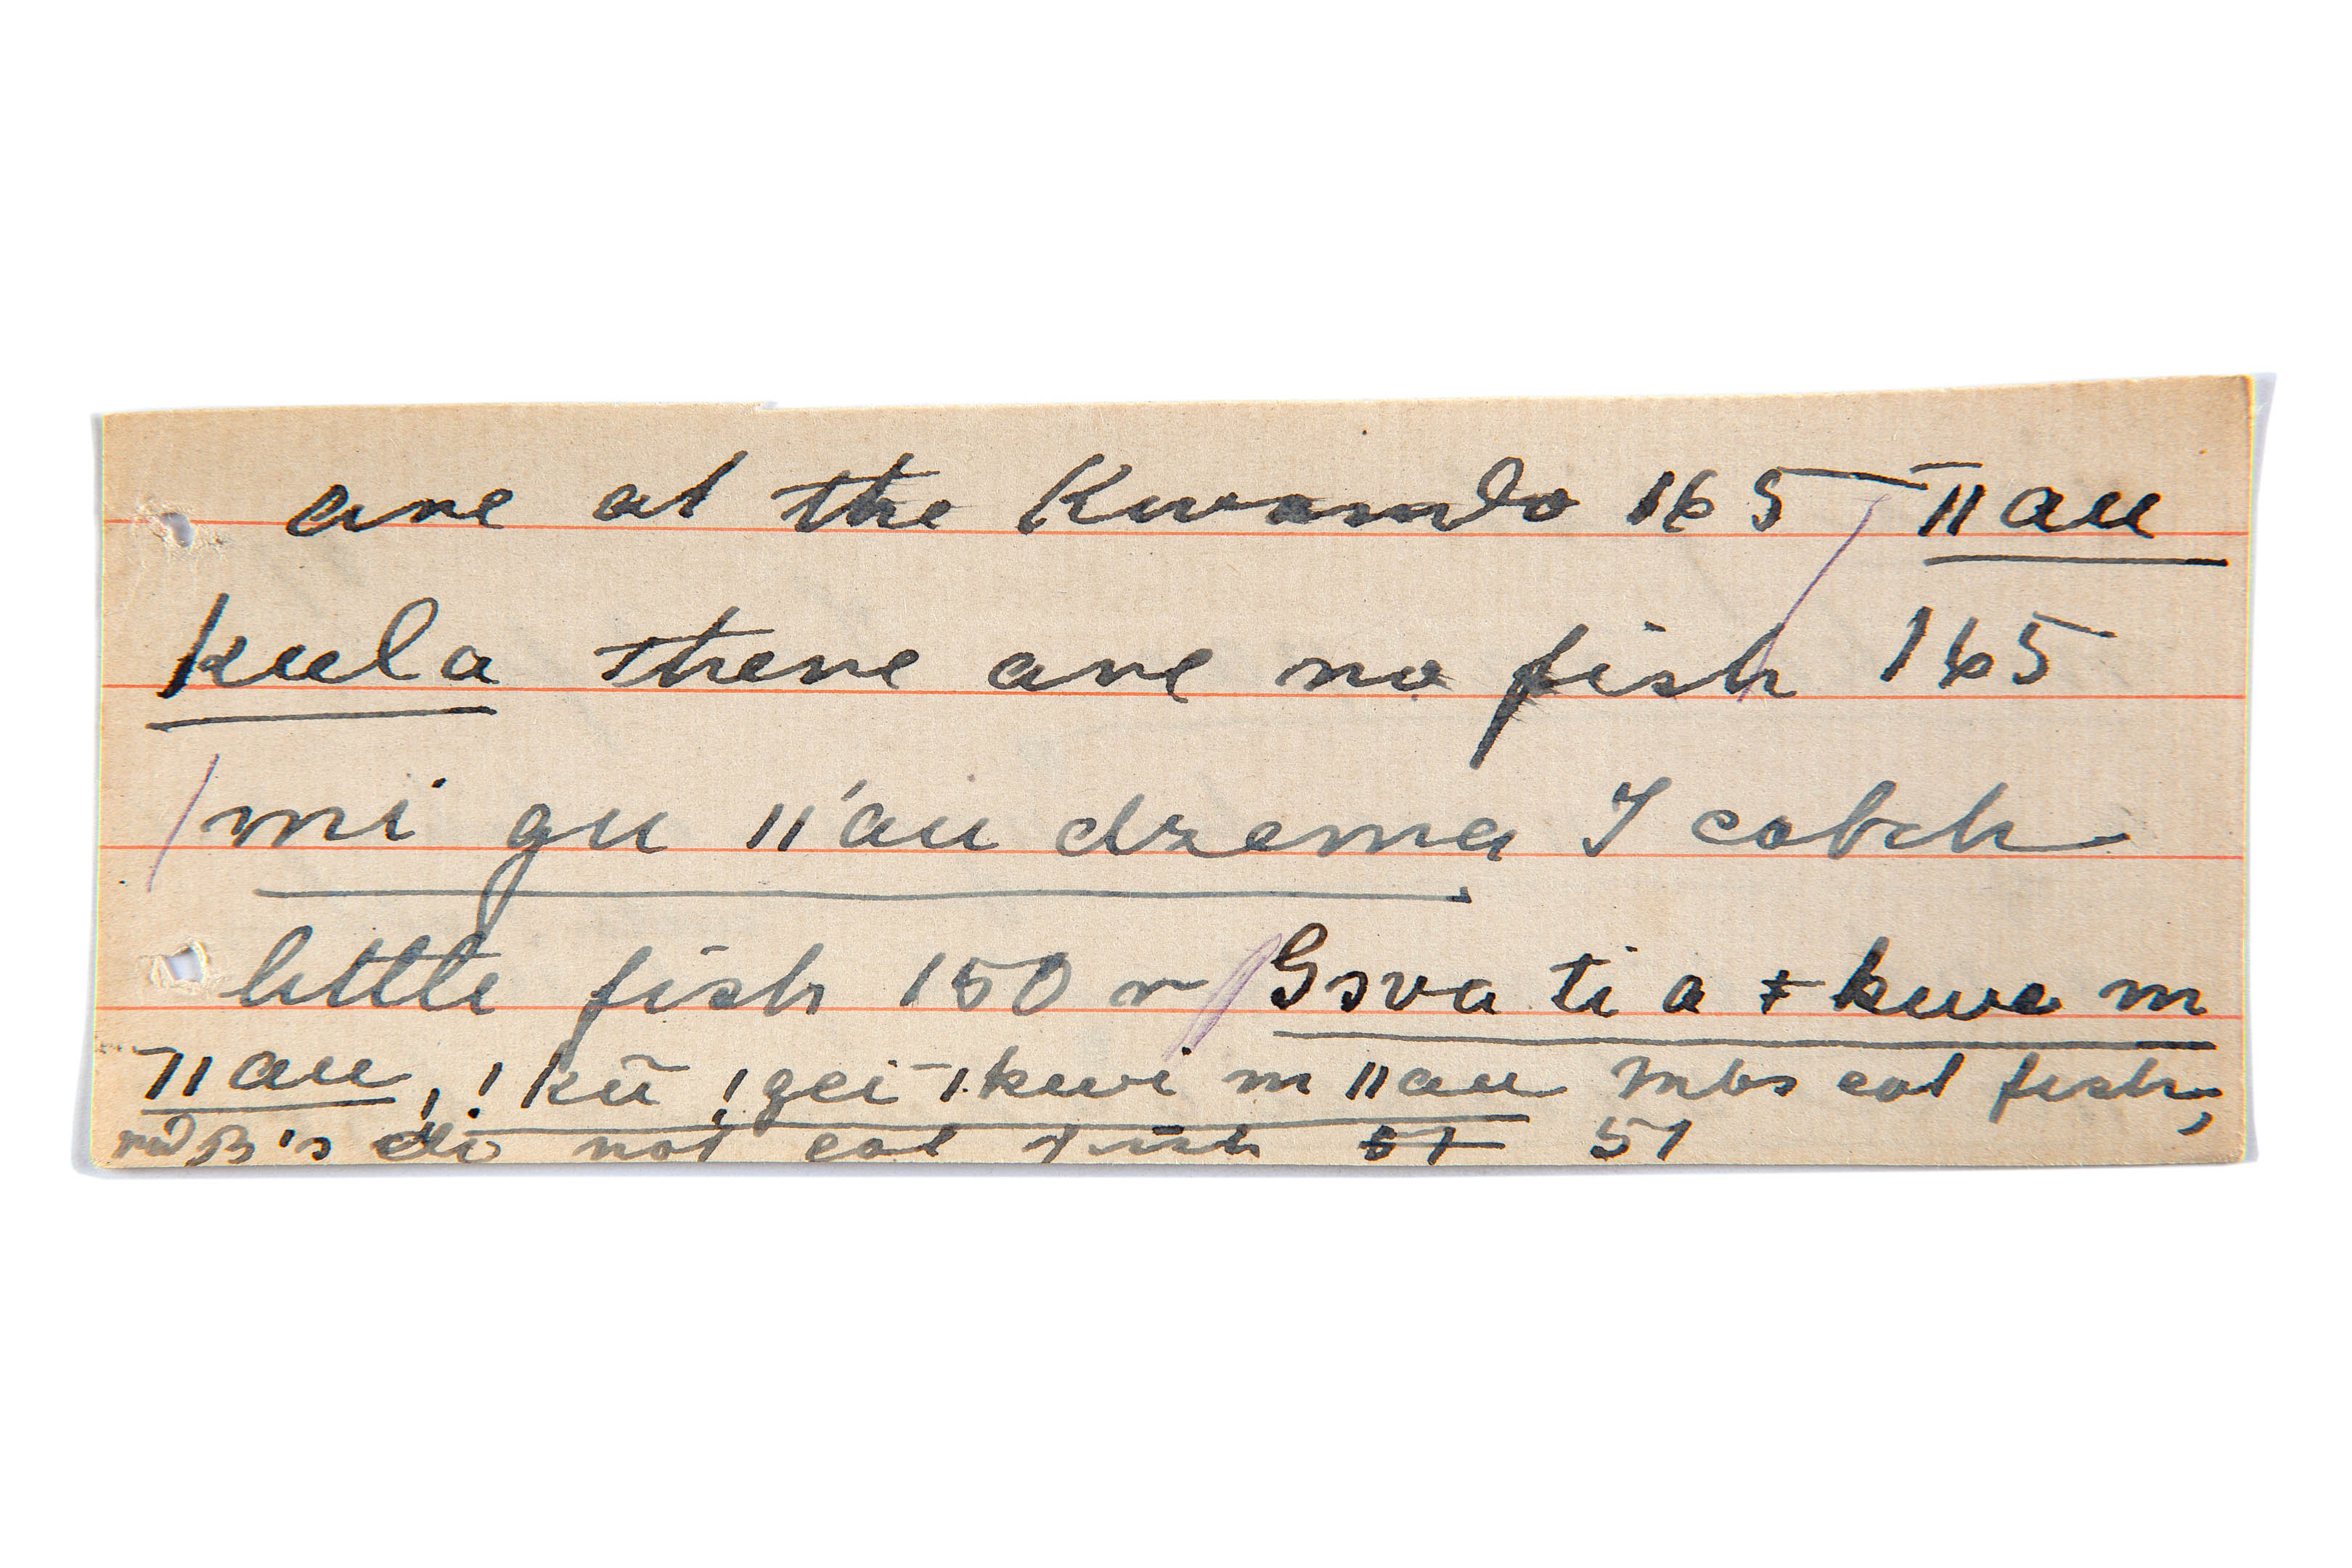 are at the Kwando 165 ⁻ǁau
kula there are no fish 165
/ mi gu ǁ'au dzema I catch
little fish 150 r / Gova ti a ǂkwe m
⁻ǁau, !kū !gei ⁻ǀkwi m ǁau Mbs eat fish,
red B's do not eat fish 51